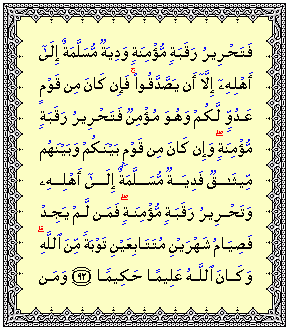 فَتَحْرِيرُ رَقَبَةٍ مُّؤْمِنَةٍ وَدِيَةٌ مُّسَلَّمَةٌ إِلَىٰٓ
أَهْلِهِۦٓ إِلَّآ أَن يَصَّدَّقُوا۟ ۚ فَإِن كَانَ مِن قَوْمٍ
عَدُوٍّ لَّكُمْ وَهُوَ مُؤْمِنٌ فَتَحْرِيرُ رَقَبَةٍ
مُّؤْمِنَةٍ ۖ وَإِن كَانَ مِن قَوْمٍۭ بَيْنَكُمْ وَبَيْنَهُم
مِّيثَـٰقٌ فَدِيَةٌ مُّسَلَّمَةٌ إِلَىٰٓ أَهْلِهِۦ
وَتَحْرِيرُ رَقَبَةٍ مُّؤْمِنَةٍ ۖ فَمَن لَّمْ يَجِدْ
فَصِيَامُ شَهْرَيْنِ مُتَتَابِعَيْنِ تَوْبَةً مِّنَ ٱللَّهِ ۗ
وَكَانَ ٱللَّهُ عَلِيمًا حَكِيمًا ﴿٩٢﴾ وَمَن